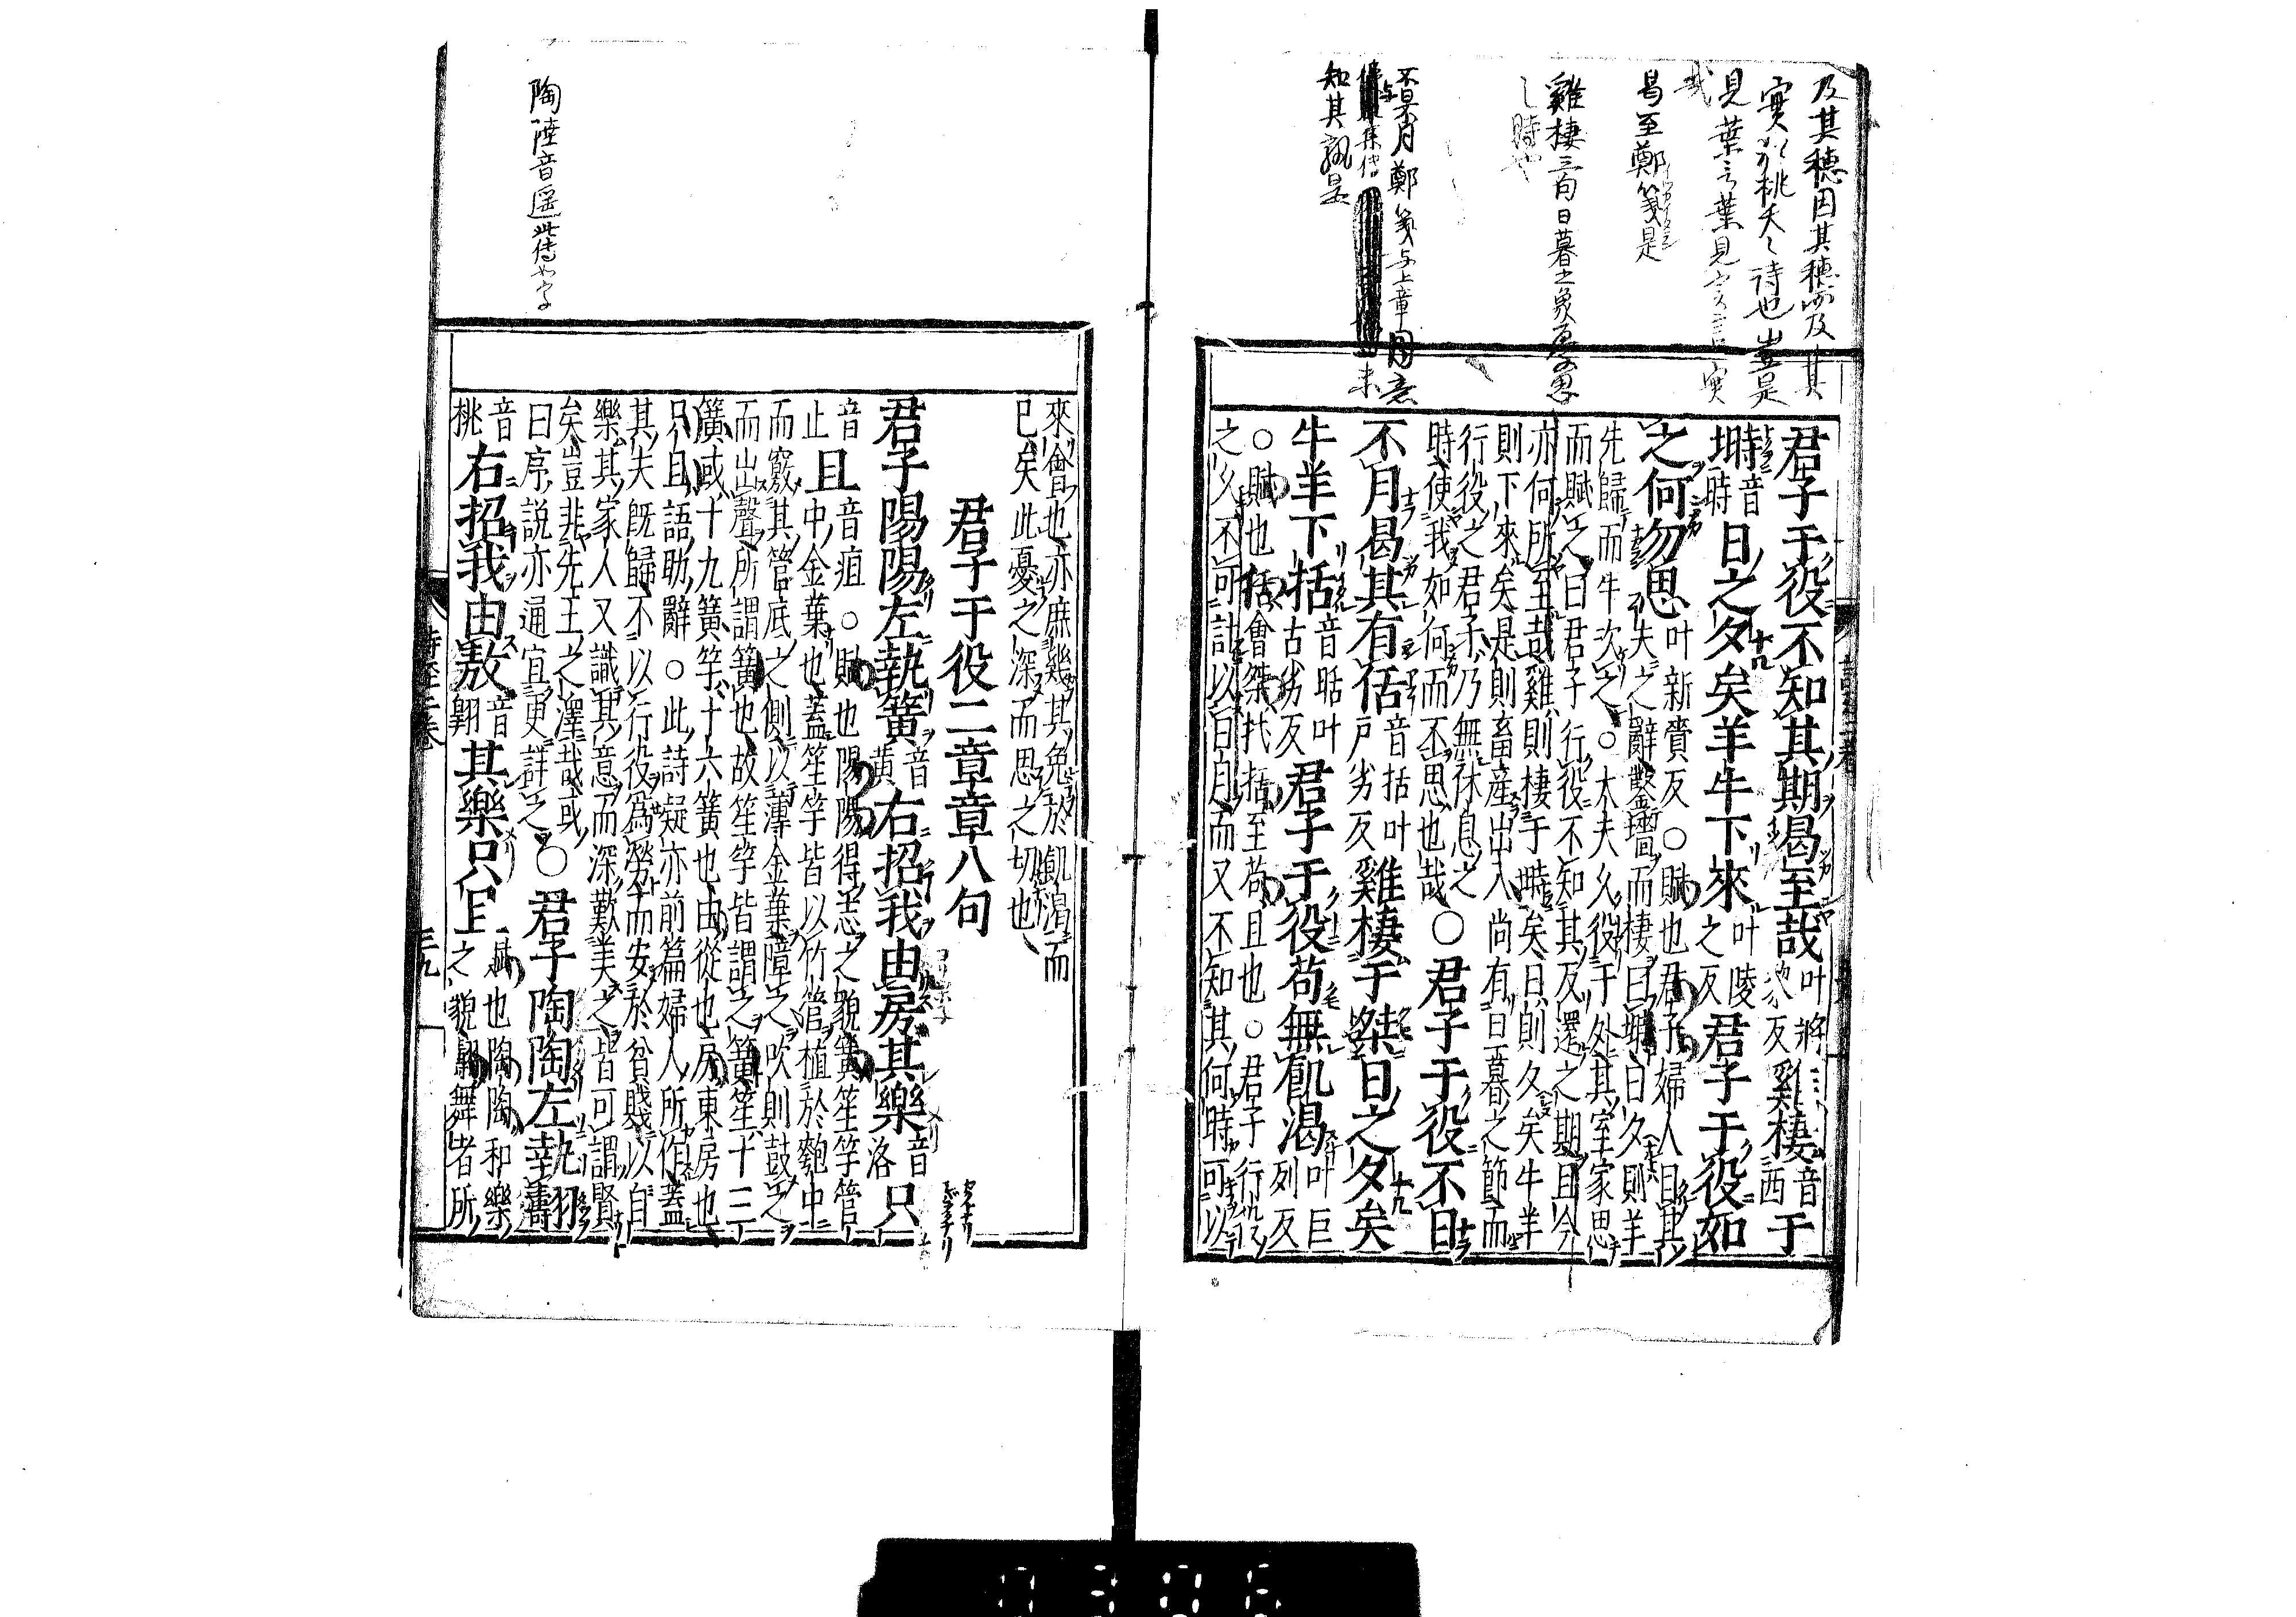 及其穂因其穂而及其
實如桃夭之詩也豈是
見葉言葉見實言實
哉
曷至鄭箋是
雞棲三句日暮之象
之時也
不日不月鄭箋与上章同意
知其孰是
君子于役不知其期曷至哉叶將黎反雞棲音西于
塒音時日之夕矣羊牛下來叶陵之反君子于役如
之何勿思叶新齎反○賦也君子婦人目其夫之辭鑿墻而棲曰塒日夕則羊
先歸而牛次之○大夫久役于外其室家思
而賦之曰君子行役不知其反還之期且今
亦何所至哉雞則棲于塒矣日則夕矣牛羊
則下來矣是則畜産出入尚有旦暮之節而
行役之君子乃無休息之
時使我如何而不思也哉○君子于役不日
不月曷其有佸音括叶戸劣反雞棲于桀日之夕矣
牛羊下括音聒叶古劣反君子于役苟無飢渇叶巨列反
○賦也佸會桀杙括至苟且也○君子行役
之久不可計以日月而又不知其何時可以
來會也亦庶幾其免於飢渇而
已矣此憂之深而思之切也
君子于役二章章八句
君子陽陽左執簧音黄右招我由房其樂音洛只
音止且音疽○賦也陽陽得志之貌簧笙竽管
中金葉也蓋笙竽皆以竹管植於匏中
而竅其管底之側以薄金葉障之吹則鼓之
而出聲所謂簧也故笙竽皆謂之簧笙十三
簧或十九簧竽十六簧也由從也房東房也
只且語助辭○此詩疑亦前篇婦人所作蓋
其夫既歸不以行役爲勞而安於貧賤以自
樂其家人又識其意而深歎美之皆可謂賢
矣豈非先王之澤哉或
曰序説亦通宜更詳之○君子陶陶左執翿
音桃右招我由敖音翺其樂只且賦也陶陶和樂之貌翿舞者所
詩經二卷
三九
陶陸音遥此傳如字